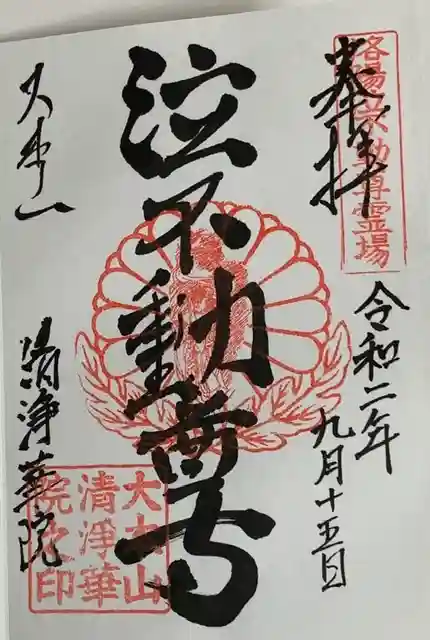 洛陽不動尊霊場
奉拝
令和二年
九月十五日
泣不動尊
大本山
清浄華院
大本山
清浄華
院之印